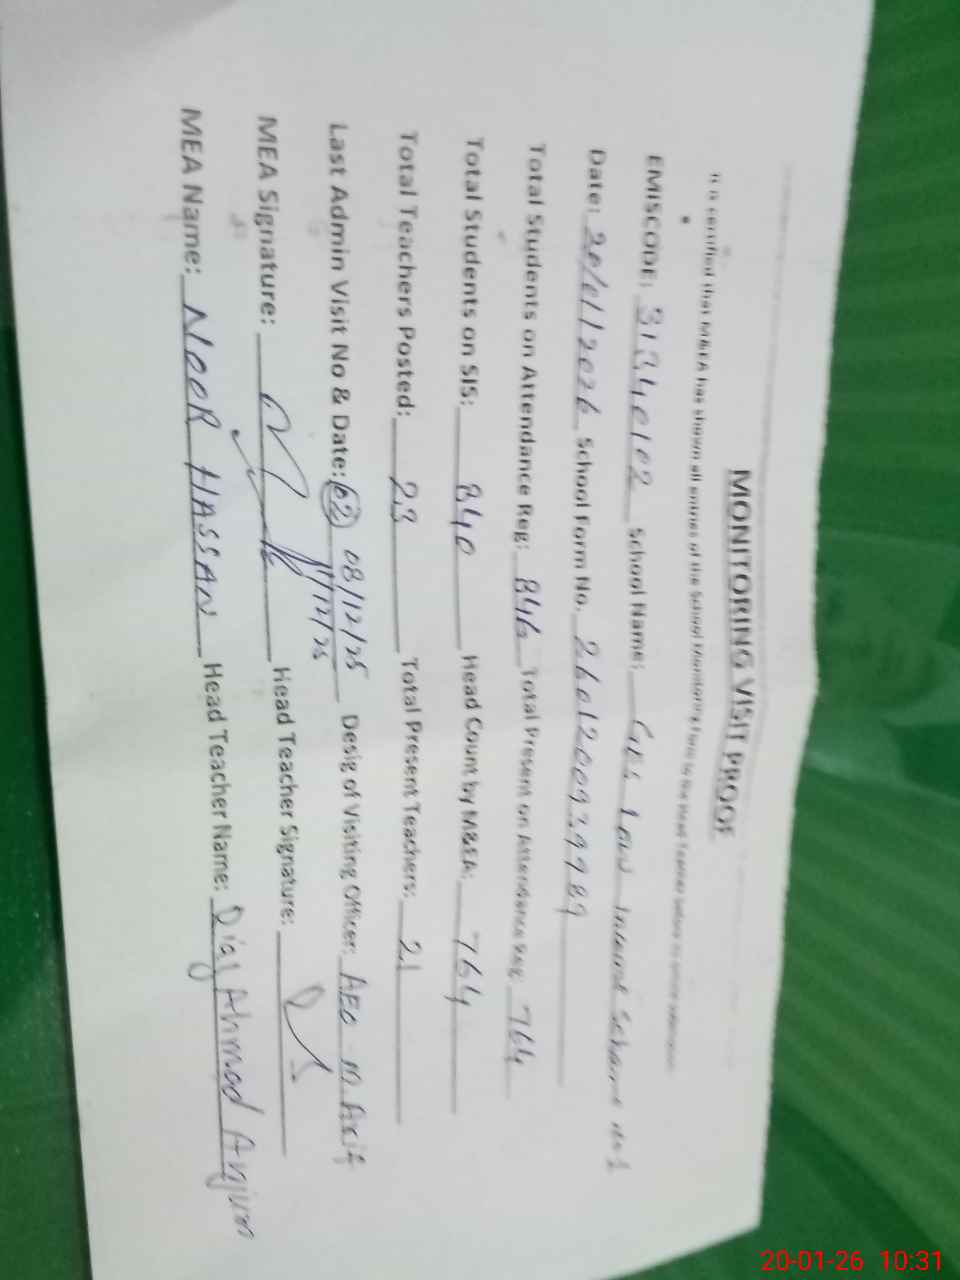 MONITORING VISIT PROOF
It is certified that M&EA has shown all entries of the School Monitoring Form to the Head Teacher before its online submission
EMISCODE: 31340102 School Name: GES Low Income Scheme No 1
Date: 20/01/2026 School Form No. 26012009399989
Total Students on Attendance Reg: 846 Total Present on Attendance Reg: 764
Total Students on SIS: 840 Head Count by M&EA: 764
Total Teachers Posted: 23 Total Present Teachers: 21
Last Admin Visit No & Date: 02 08/12/25 Desig of Visiting Officer: AEO M. Asif
MEA Signature: Head Teacher Signature:
MEA Name: NOOR HASSAN Head Teacher Name: Ahmad Anjum
20-01-26 10:31